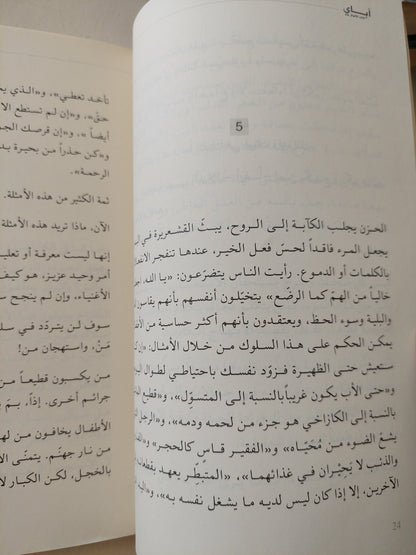 أباي
5
الحزن يجلب الكآبة إلى الروح، يبثّ القشعريرة في
يجعل المرء فاقداً لحسّ فعل الخير، عندها تنفجر
بالكلمات أو الدموع. رأيت الناس يتضرّعون: «يا الله،
خالياً من الهمّ كما الرضّع» يتخيّلون أنفسهم بأنهم يقاسون
والبلية وسوء الحظ، ويعتقدون بأنهم أكثر حساسية من
يمكن الحكم على هذا السلوك من خلال الأمثال:
ستعيش حتى الظهيرة فزوّد نفسك باحتياطي لطوال
«وحتى الأب يكون غريباً بالنسبة إلى المتسوّل»، و«قطيع
بالنسبة إلى الكازاخي هو جزء من لحمه ودمه»، و«الرجل
يشعّ الضوء من مُحَيّاه» و«الفقير قاسٍ كالحجر»
والذئب لا يَحِيْران في غذائهما»، «المتبطّر يعهد
الآخرين. إلا إذا كان ليس لديه ما يشغل نفسه به»،
24
تأخذ تعطي»، و«الذي
حقّ»، و«إن لم تستطع
أيضاً»، و«إن قرصك
و«كن حذراً من بحيرة
الرحمة».
ثمة الكثير من هذه الأمثلة.
الآن، ماذا تريد هذه الأمثلة
إنها ليست معرفة أو
أمر وحيد عزيز، هو
الأغنياء، وإن لم ينجح
سوف لن يتردّد في
مَنْ، واستهجان من!
من يكسبون قطيعاً من
جرائم أخرى. إذاً، بمَ
الأطفال يخافون من
من نار جهنّم. يتمنّى
بالخجل، لكن الكبار